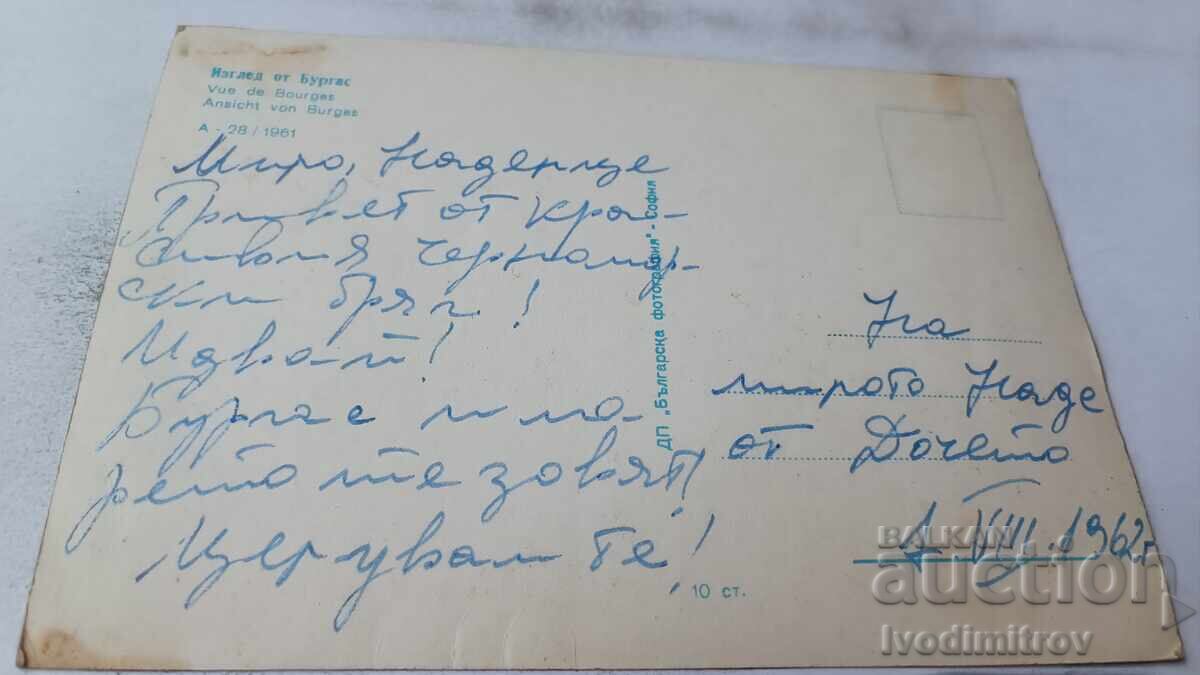 Изглед от Бургас
Vue de Bourgas
Ansicht von Burgas
А - 28 / 1961
Миро, Наденце
Привет от кра-
сивия черномор-
ски бряг!
Идвай!
Бургас и мо-
рето те зоват!
Целувам те!
10 ст.
ДП „Българска фотография" - София
На
мирото Наде
от Дочето
1. VIII. 1962 г.
BALKAN
auction
Ivodimitrov